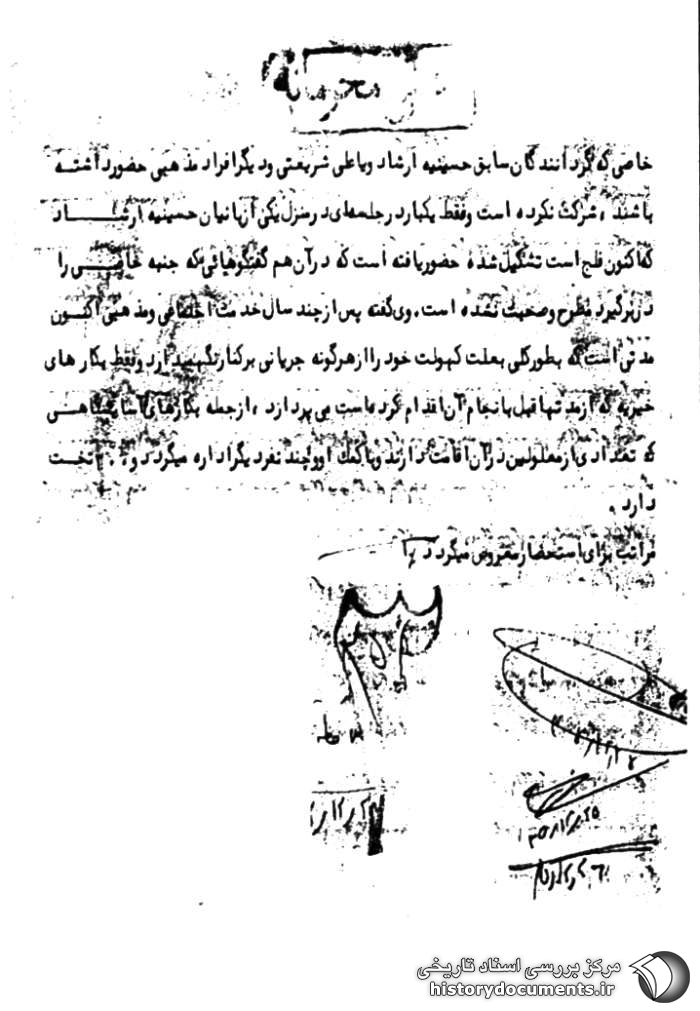 محرمانه
خاصی که گردانندگان سابق حسینیه ارشاد و یا علی شریعتی و دیگر افراد مذهبی حضور داشته
باشند ، شرکت نکرده است و فقط یکبار در جلسه‌ای در منزل یکی از بانیان حسینیه ارشاد
که اکنون فلج است تشکیل شده حضور یافته است که در آن هم گفتگوهائی که جنبه خاصی را
در بر گیرد مطرح و صحبت نشده است . وی گفته پس از چند سال خدمت اجتماعی و مذهبی اکنون
مدتی است که بطور کلی بعلت کهولت خود را از هرگونه جریانی برکنار نگهمیدارد و فقط بکارهای
خیریه که از مدتها قبل بانجام آن اقدام کرده است می پردازد ، از جمله بکارهای آسایشگاهی
که تعدادی از معلولین در آن اقامت دارند و با کمک او و چند نفر دیگر اداره میگردد
دارد .
مراتب برای استحضار معروض میگردد
مرکز بررسی اسناد تاریخی
historydocuments.ir